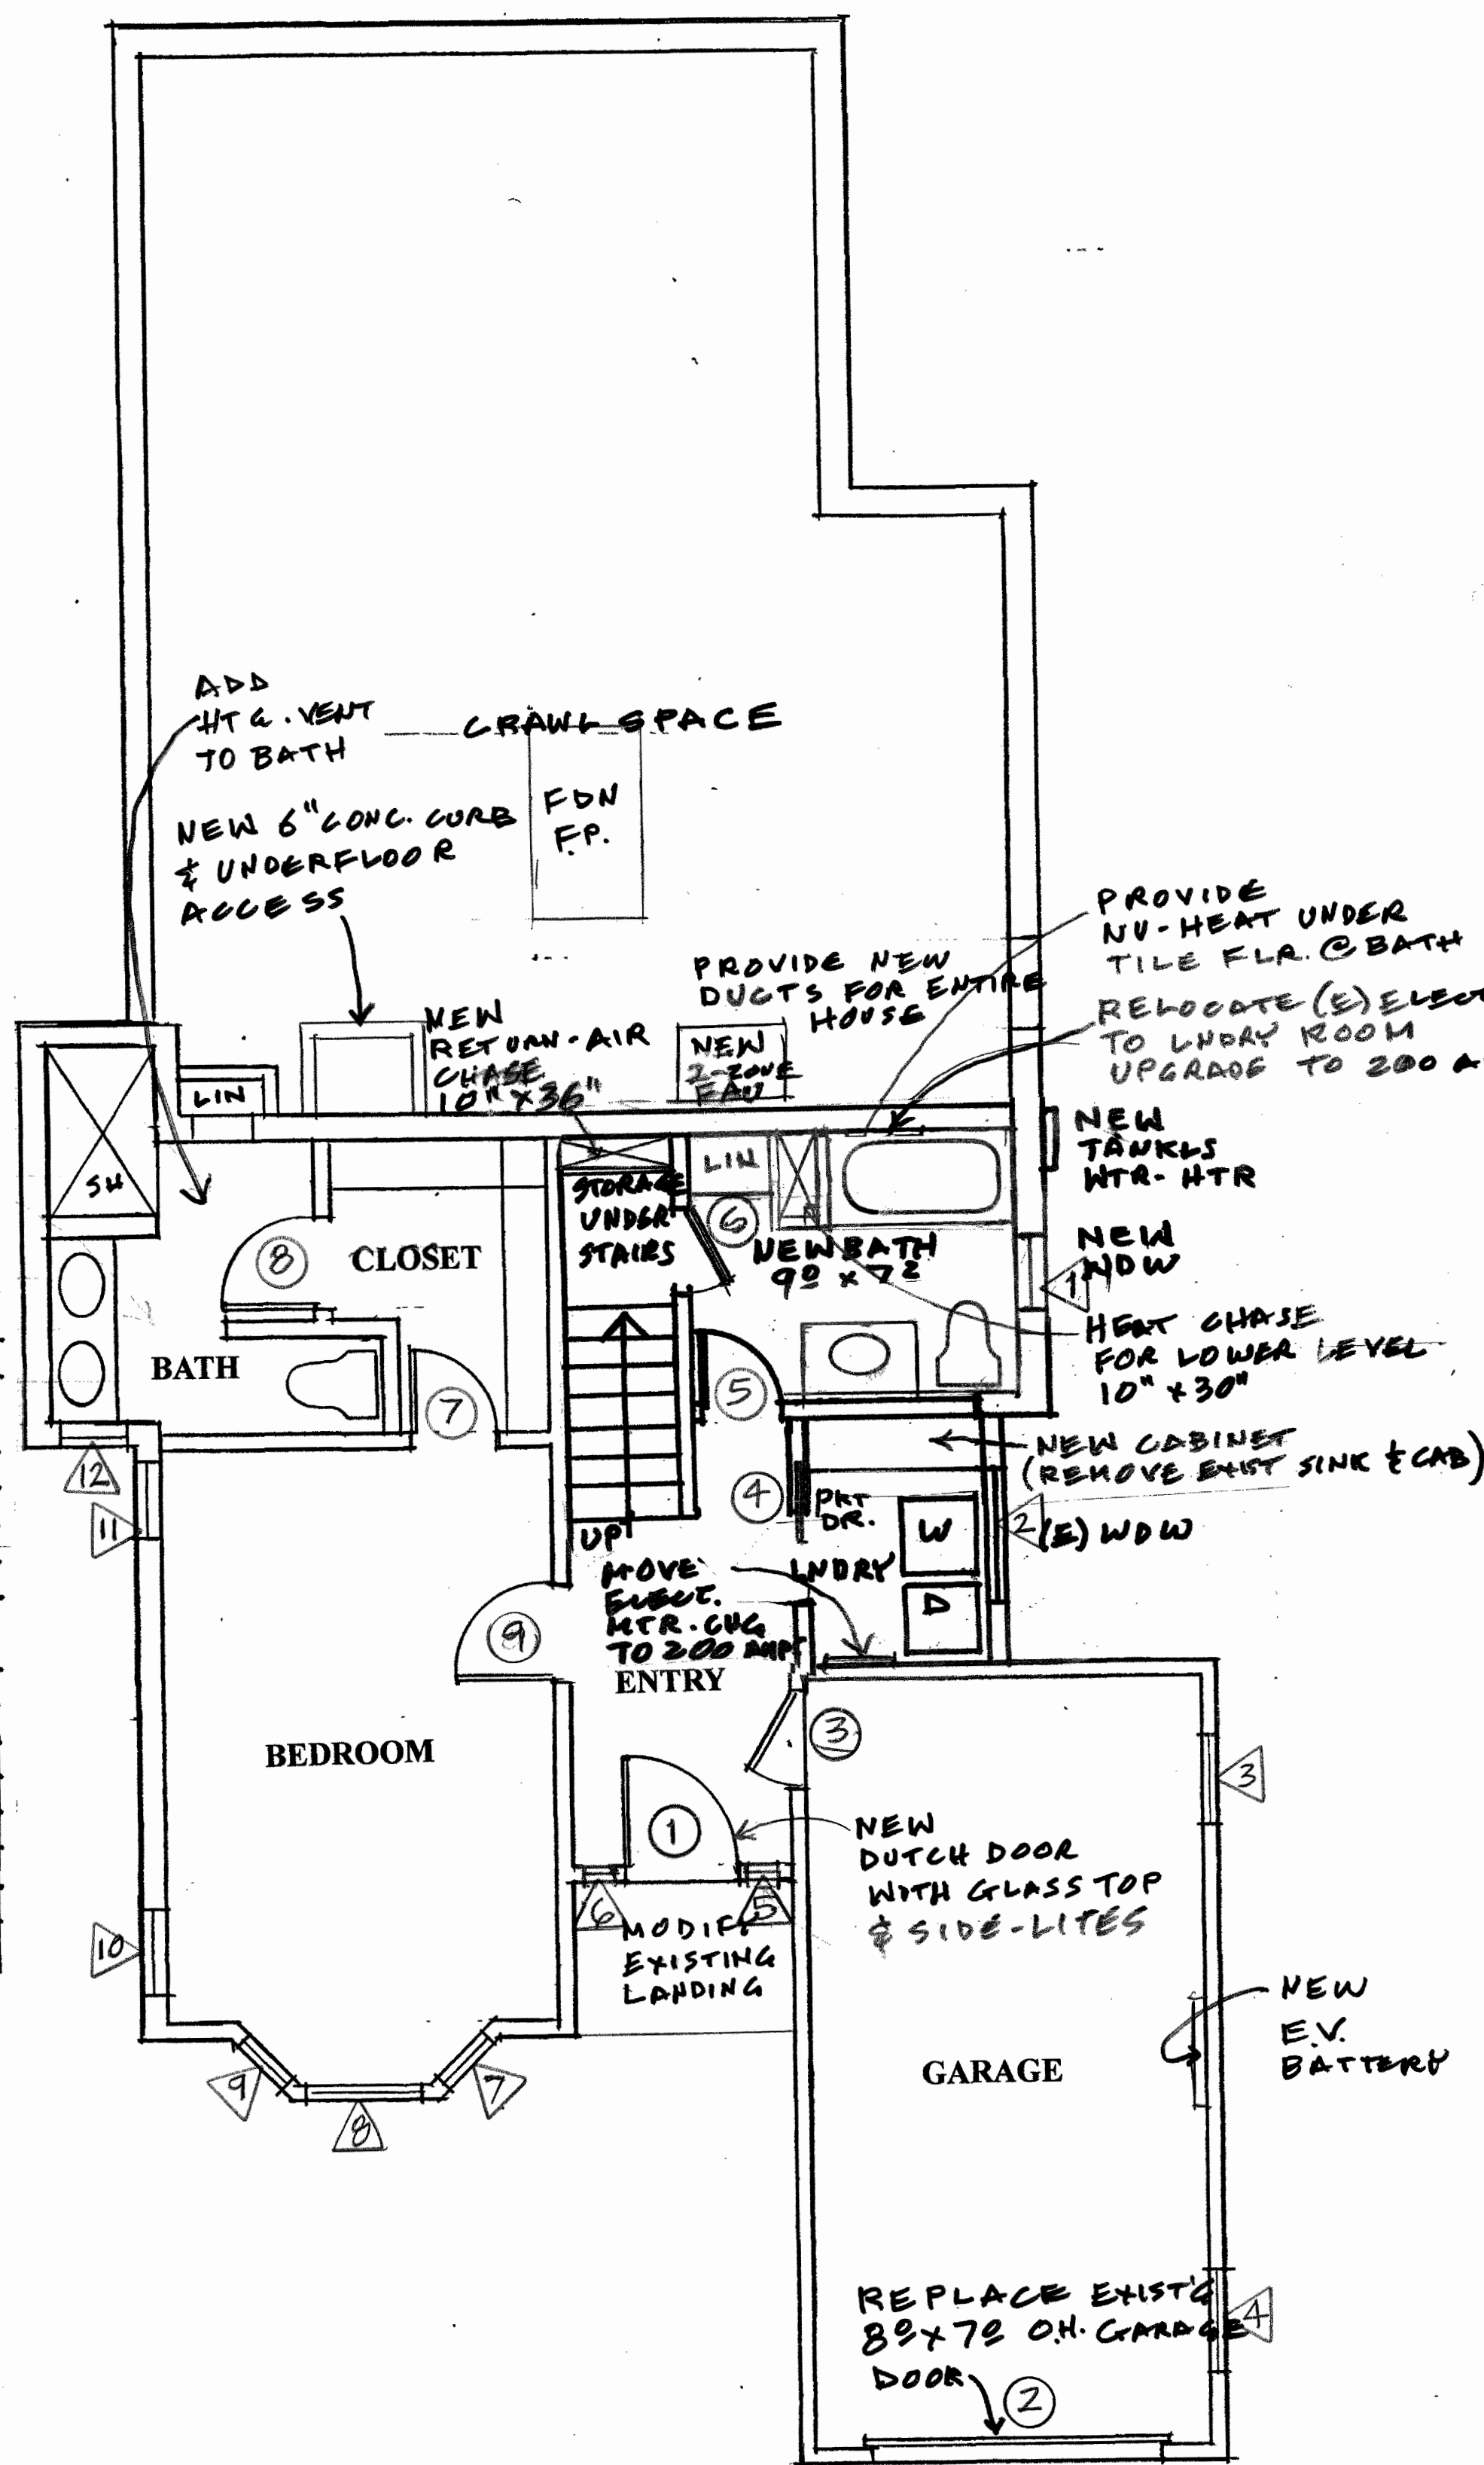 ADD
HTG. VENT
TO BATH
CRAWL SPACE
NEW 6" CONC. CURB
& UNDERFLOOR
ACCESS
FDN
F.P.
PROVIDE
NU-HEAT UNDER
TILE FLR. @ BATH
PROVIDE NEW
DUCTS FOR ENTIRE
HOUSE
RELOCATE (E) ELECT
TO LNDRY ROOM
UPGRADE TO 200 A
NEW
RETURN-AIR
CHASE
10" x 36"
NEW
2-ZONE
FAU
LIN
SH
NEW
TANKLS
WTR-HTR
STORAGE
UNDER
STAIRS
LIN
6
NEW BATH
9º x 7²
NEW
WDW
1
8
CLOSET
HEAT CHASE
FOR LOWER LEVEL
10" x 30"
BATH
7
5
NEW CABINET
(REMOVE EXIST SINK & CAB)
12
11
4
PKT
DR.
W
2
(E) WDW
UP
MOVE
ELECT.
MTR. CHG
TO 200 AMP
LNDRY
D
9
ENTRY
BEDROOM
3
3
1
NEW
DUTCH DOOR
WITH GLASS TOP
& SIDE-LITES
6
5
MODIF.
EXISTING
LANDING
10
NEW
E.V.
BATTERY
GARAGE
9
7
8
REPLACE EXIST'G
8º x 7º O.H. GARAGE
DOOR
4
2